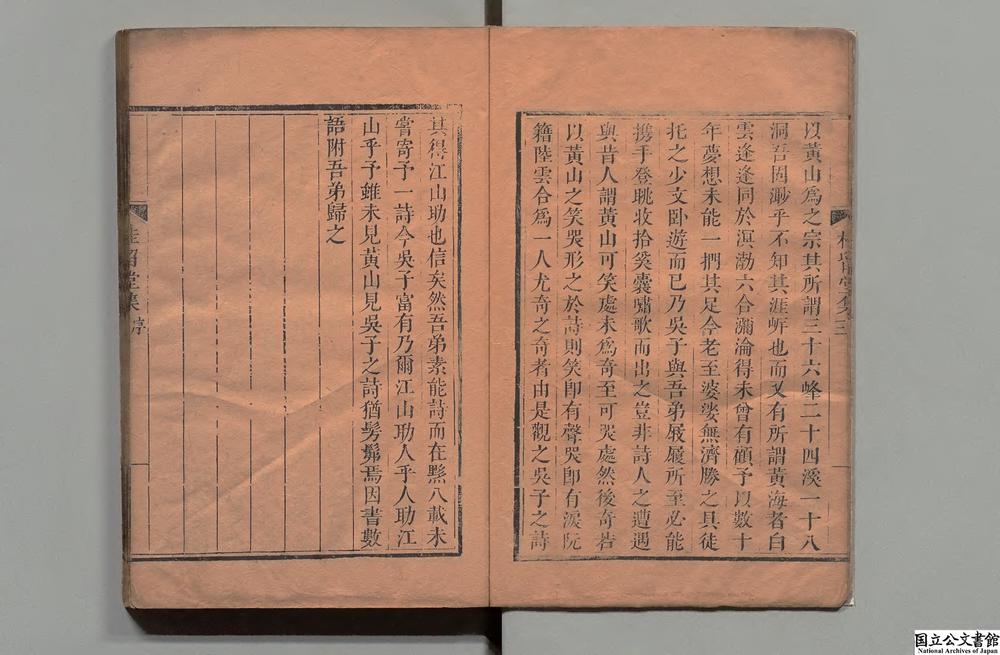 以黃山爲之宗其所謂三十六峰二十四溪一十八
洞吾固渺乎不知其涯岸也而又有所謂黃海者白
雲逢逢同於溟渤六合瀰淪得未曾有顧予以數十
年夢想未能一捫其足今老至婆娑無濟勝之具徒
托之少文卧遊而已乃吳子與吾弟屐履所至必能
携手登眺收拾奚囊嘯歌而出之豈非詩人之遭遇
與昔人謂黃山可笑處未爲奇至可哭處然後奇若
以黃山之笑哭形之於詩則笑卽有聲哭卽有淚阮
籍陸雲合爲一人尤奇之奇者由是觀之吳子之詩
其得江山助也信矣然吾弟素能詩而在黟八載未
嘗寄予一詩今吳子富有乃爾江山助人乎人助江
山乎予雖未見黃山見吳子之詩猶髣髴焉因書數
語附吾弟歸之
桂留堂集 序
国立公文書館
National Archives of Japan